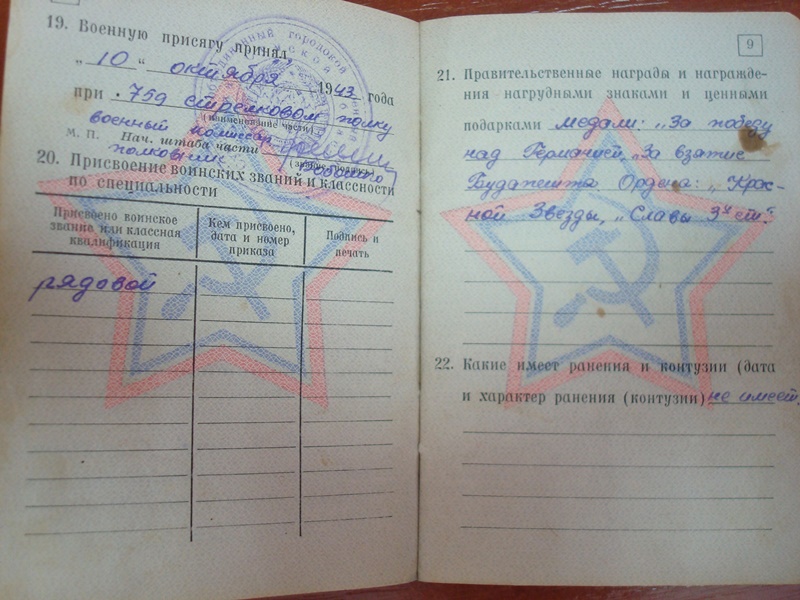 19. Военную присягу принял,
„10“ октября 1943 года
при 759 стрелковом полку
(наименование части)
военный комиссар
М. П. Нач. штаба части
полковник
20. Присвоение воинских званий и классности
по специальности
Присвоено воинское звание или классная квалификация
Кем присвоено, дата и номер приказа
Подпись и печать
рядовой
9
21. Правительственные награды и награжде-
ния нагрудными знаками и ценными
подарками медали: „За победу
над Германией, „За взятие
Будапешта Ордена: „Крас-
ной Звезды, „Славы 3й ст“.
22. Какие имеет ранения и контузии (дата
и характер ранения (контузии) не имеет.